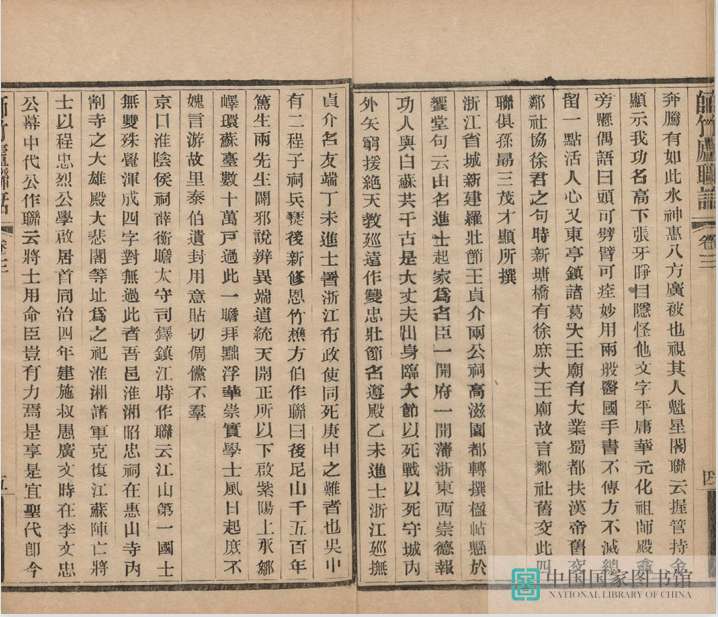 師竹廬聯話 卷三 四
奔騰有如此水神惠八方廣被也視其人魁星閣聯云握管持金
顯示我功名高下張牙睜目隱怪他文字平庸華元化祖師殿龕
旁懸偶語曰頭可劈臂可痊妙用兩般醫國手書不傳方不滅總
留一點活人心又東亭鎮諸葛大王廟有大業蜀都扶漢帝舊交
鄰社協徐君之句時新塘橋有徐庶大王廟故言鄰社舊交此四
聯俱孫勗三茂才顯所撰
浙江省城新建羅壯節王貞介兩公祠高滋園都轉撰楹帖懸於
饗堂句云由名進士起家爲名臣一開府一開藩浙東西崇德報
功人與白蘇共千古是大丈夫出身臨大節以死戰以死守城內
外矢窮援絕天敎廵遠作雙忠壯節名遵殿乙未進士浙江廵撫
貞介名友端丁未進士署浙江布政使同死庚申之難者也吳中
有二程子祠兵燹後新修恩竹樵方伯作聯曰後尼山千五百年
篤生兩先生闢邪說辨異端道統天開正所以下啟紫陽上承鄒
嶧環蘇臺數十萬戸過此一瞻拜黜浮華崇實學士風日起庶不
媿言游故里泰伯遺封用意貼切倜儻不羣
京口淮陰侯祠薛衡瞻太守司鐸鎮江時作聯云江山第一國士
無雙殊覺渾成四字對無過此者吾邑淮湘昭忠祠在惠山寺內
割寺之大雄殿大悲閣等址爲之祀淮湘諸軍克復江蘇陣亡將
士以程忠烈公學啟居首同治四年建施叔愚廣文時在李文忠
公幕中代公作聯云將士用命臣豈有力焉是享是宜聖代卽今
師竹廬聯話 卷三 五
中国国家图书馆
NATIONAL LIBRARY OF CHINA